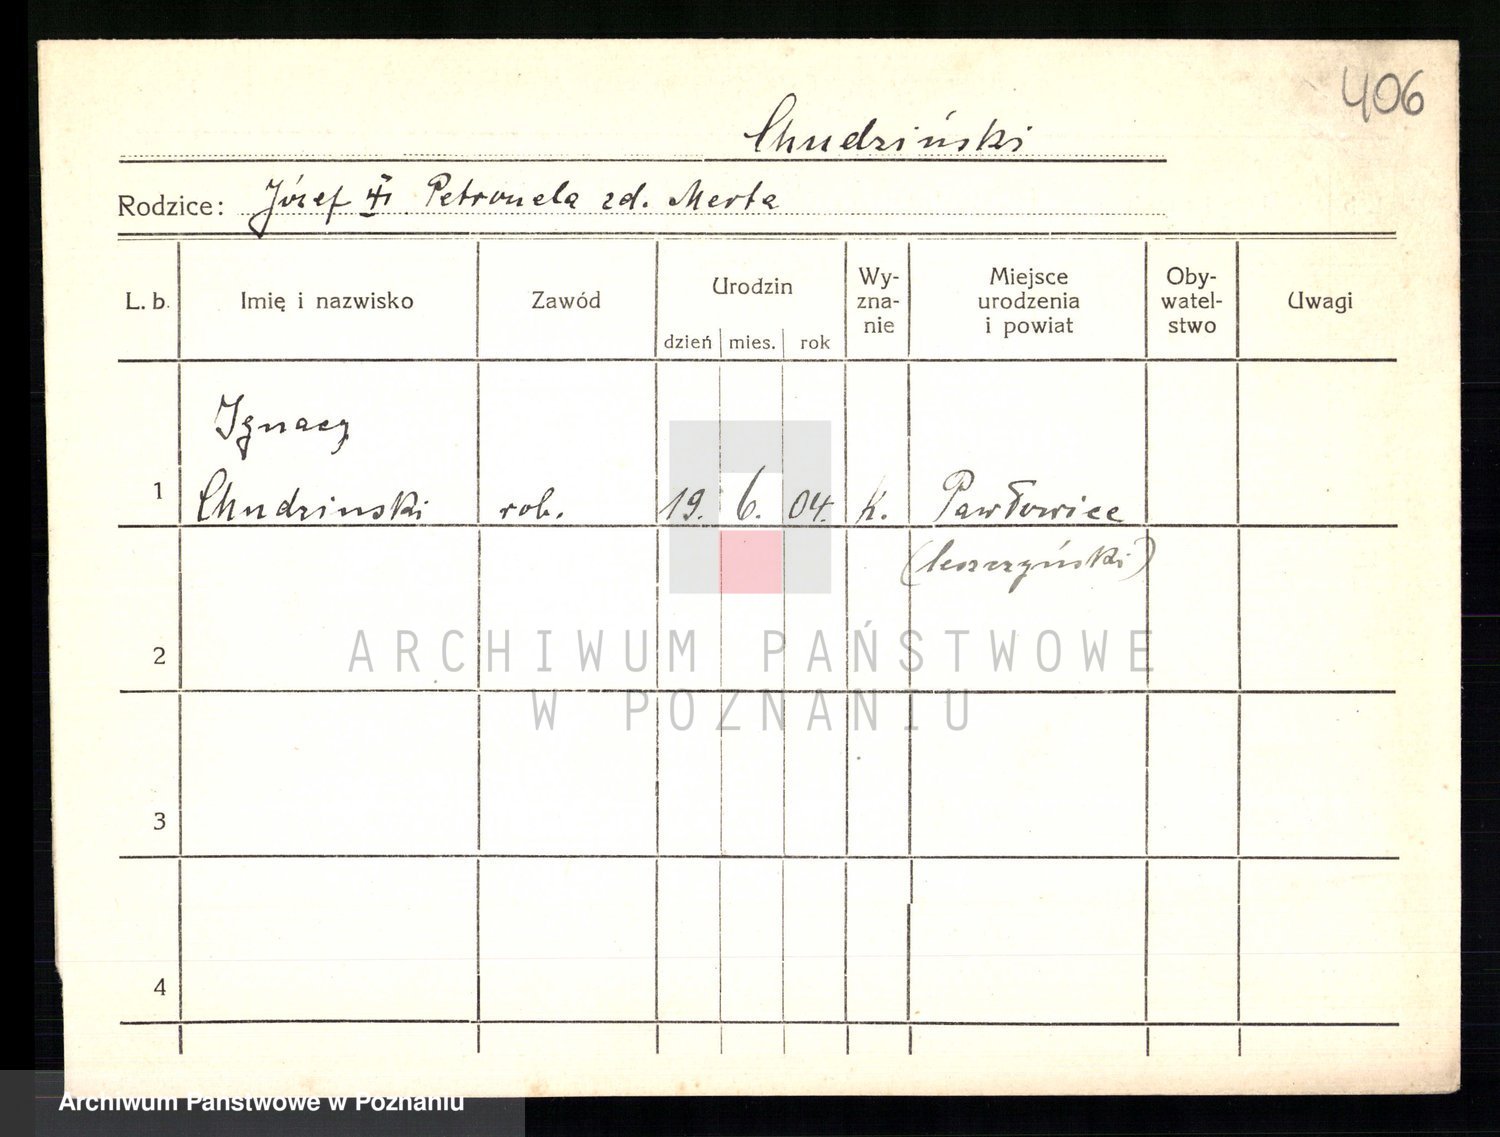 406
Chudziński
Rodzice: Józef Petronela zd. Merta
L. b. Imię i nazwisko Zawód Urodzin dzień mies. rok Wy-zna-nie Miejsce urodzenia i powiat Oby-watel-stwo Uwagi
Ignacy
1 Chudzinski rob. 19. 6. 04. k. Pawłowice
(leszczyński)
2
ARCHIWUM PAŃSTWOWE
W POZNANIU
3
4
Archiwum Państwowe w Poznaniu